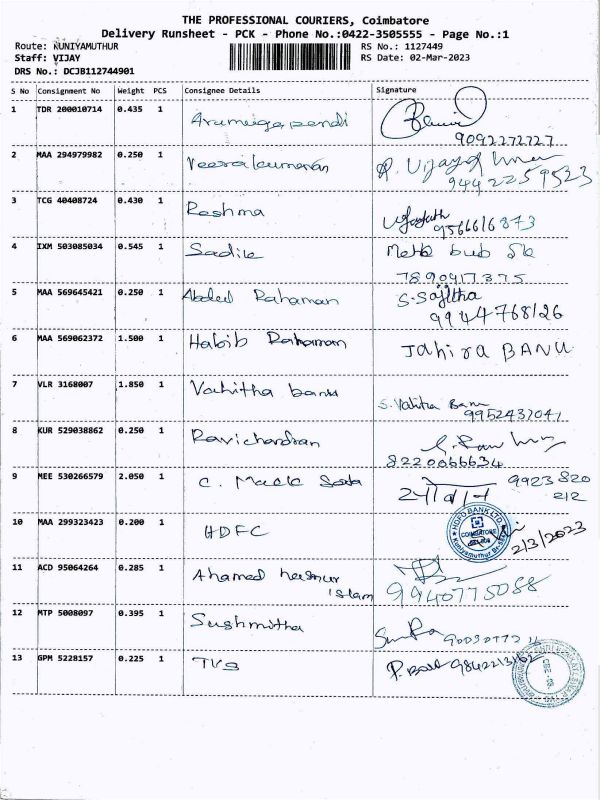 THE PROFESSIONAL COURIERS, Coimbatore
Delivery Runsheet - PCK - Phone No.:0422-3505555 - Page No.:1
Route: KUNIYAMUTHUR RS No.: 1127449
Staff: VIJAY RS Date: 02-Mar-2023
DRS No.: DCJB112744901
S No Consignment No Weight PCS Consignee Details Signature
1 TDR 200010714 0.435 1 Arumugapandi
9092272727
2 MAA 294979982 0.250 1 Veerakumaran
9442259523
3 TCG 40408724 0.430 1 Reshma
9566616873
4 IXM 503085034 0.545 1 Sadik
7890417375
5 MAA 569645421 0.250 1 Abdul Rahaman S.Sajitha
9944768126
6 MAA 569062372 1.500 1 Habib Rahaman Jahira BANU
7 VLR 3168007 1.850 1 Vahitha banu
9952437041
8 KUR 529038862 0.250 1 Ravichandran
8220066634
9 MEE 530266579 2.050 1 C. 9923 820
212
10 MAA 299323423 0.200 1 HDFC HDFC BANK LTD. COIMBATORE 2/3/2023
11 ACD 95064264 0.285 1 Ahamed
Islam 9940775088
12 MTP 5008097 0.395 1 Sushmitha
13 GPM 5228157 0.225 1 TVS 9842213162